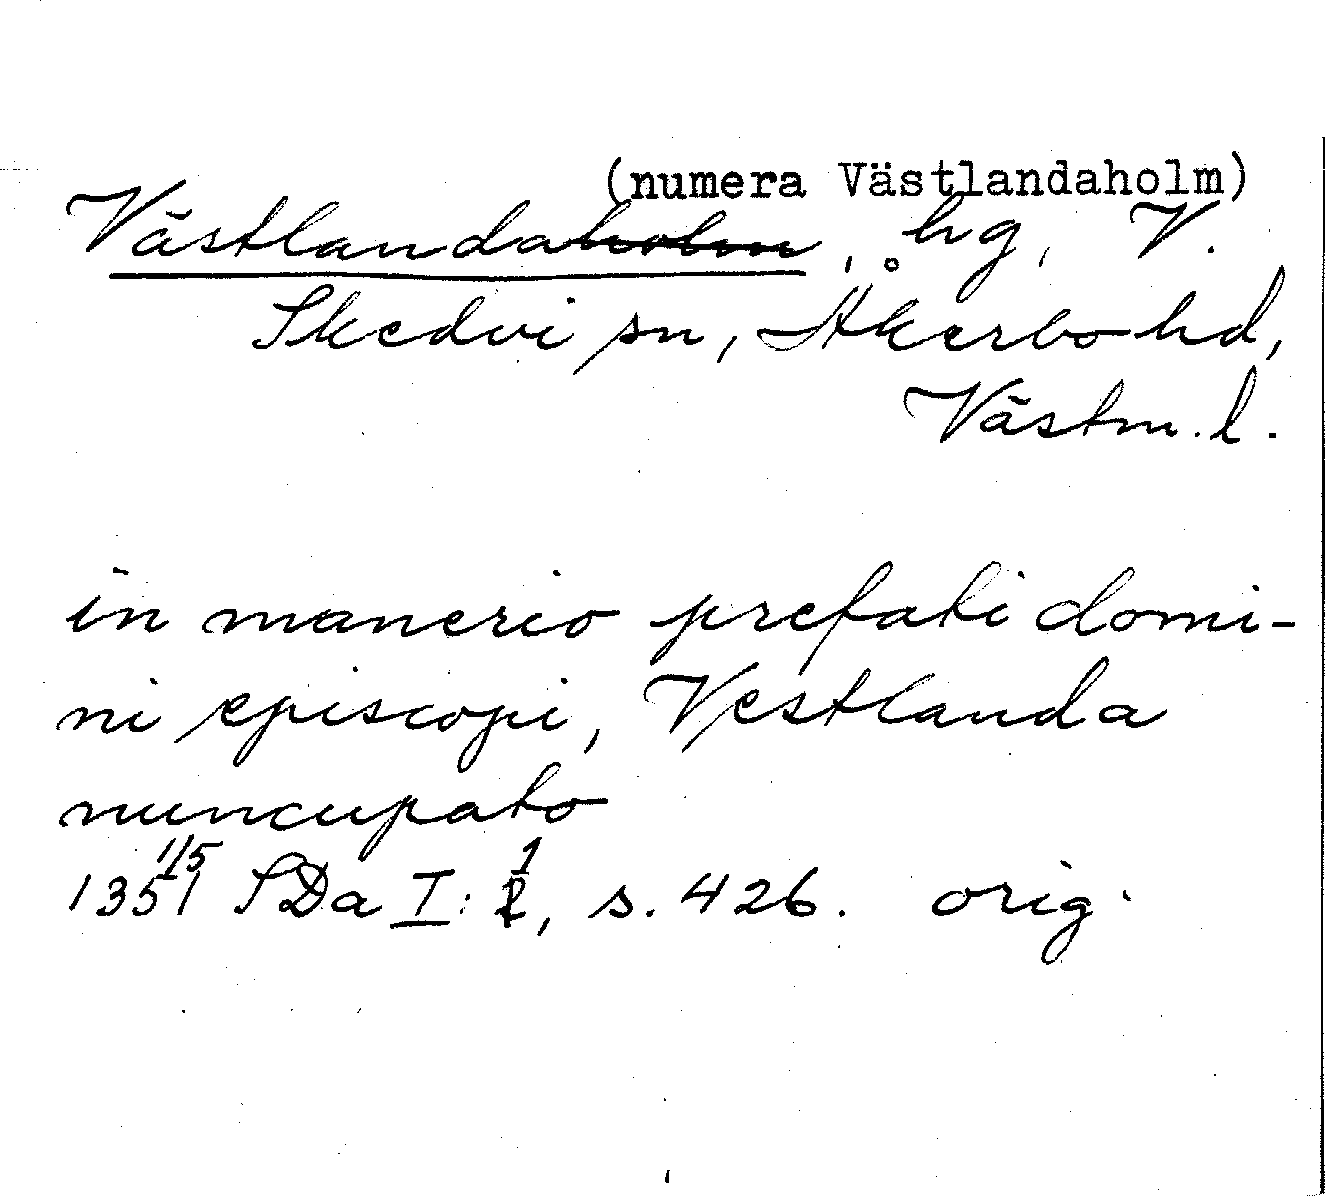 (numera Västlandaholm)
Västlandaholm, hg, V.
Skedvi sn, Åkerbo hd,
Västm. l.
in manerio prefati domi-
ni episcopi, Vestlanda
nuncupato
1351 1/5 SDa I: 1, s. 426. orig.